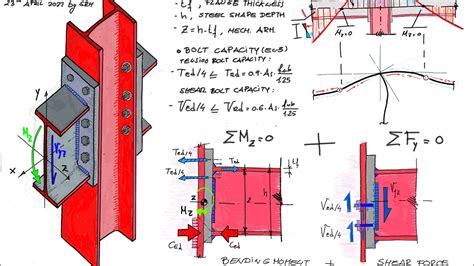 23rd APRIL 2022 by SEM
- tf, FLANGE THICKNESS
- h, STEEL SHAPE DEPTH
- z = h-tf, MECH. ARM.
• BOLT CAPACITY (EC3)
TENSION BOLT CAPACITY:
- Ted/4 ≤ Ted = 0.9·As·fub/1.25
SHEAR BOLT CAPACITY:
- Ved/4 ≤ Ved = 0.6·As·fub/1.25
I
My=0
My=0
Y
Mz
Vy
X
Z
ΣMz=0
+
ΣFy=0
Ted/4
Ted
Ted/4
h
z
Mz
Ced
Ced
BENDING MOMENT
Ved/4
Ved/4
SHEAR FORCE